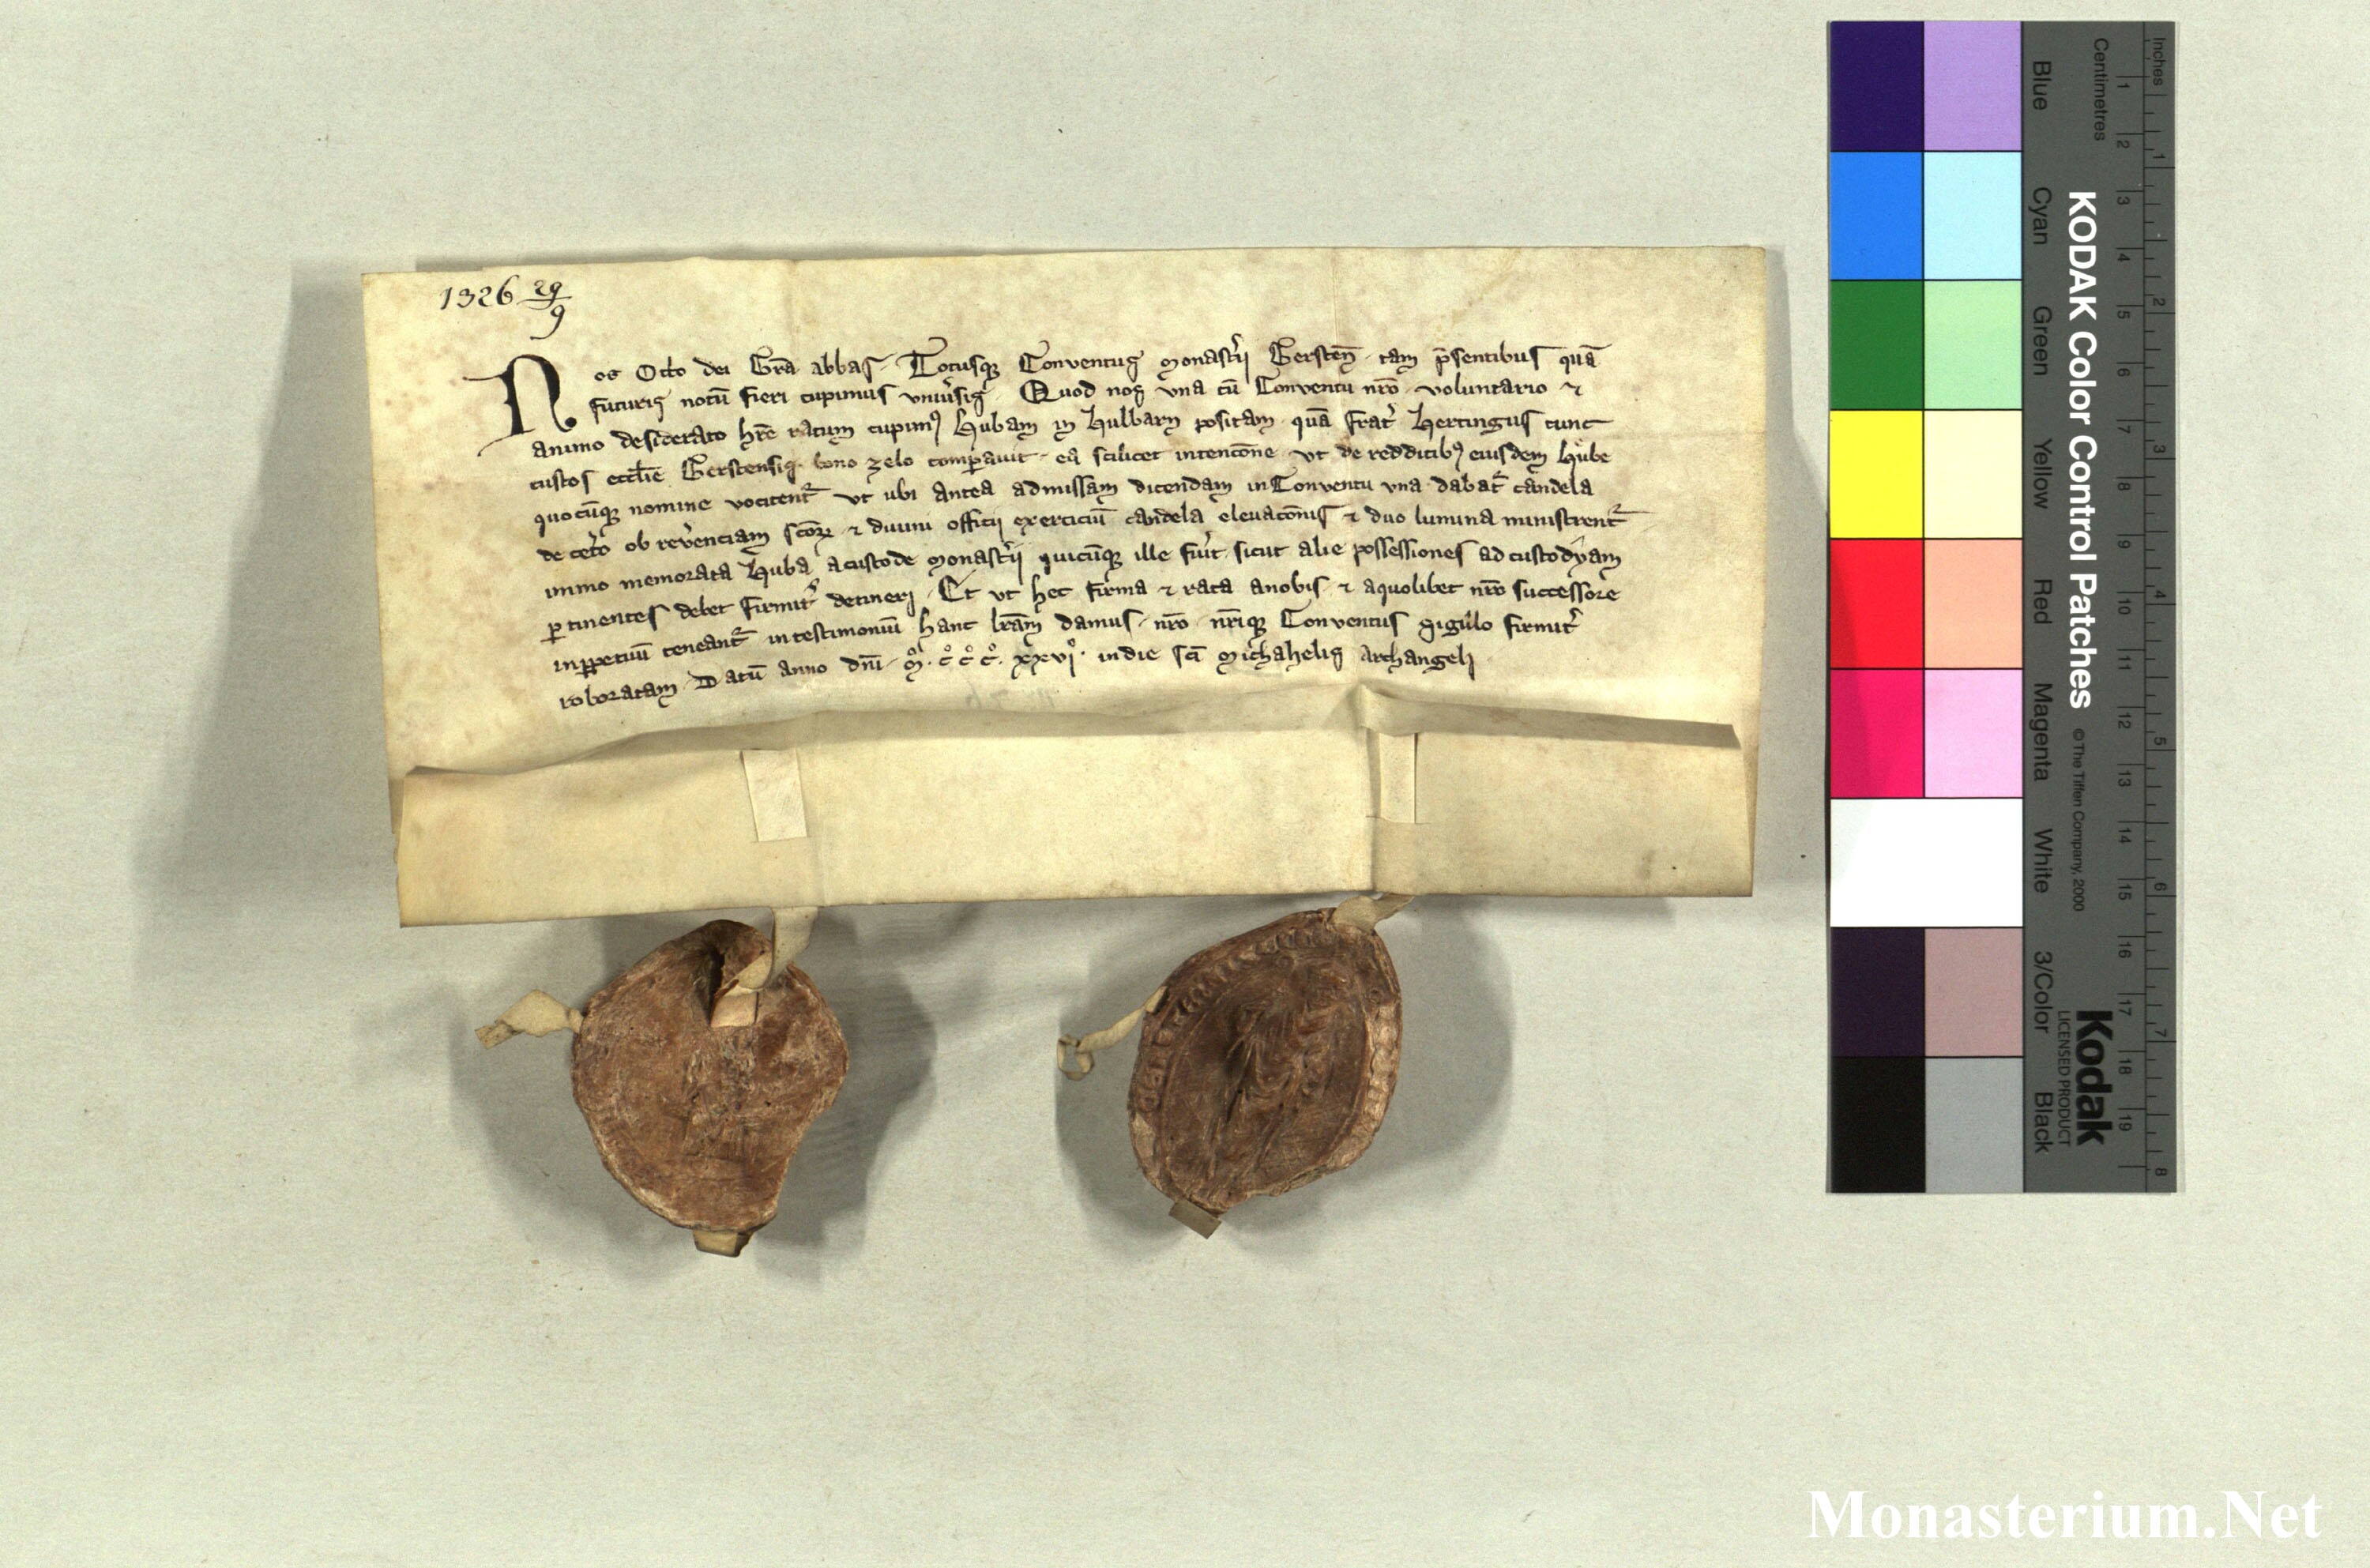 1326 29/9
Nos Otto dei Gr̄a abbas · Totusqꝫ Conventus monast̓ij Gersten̄ · tam p̄sentibus quā
futuris notū fieri cupimus univ̓sis · Quod nos una cū Conventu nr̄o · voluntario ⁊
animo desiderato hr̄e ratum cupimꝰ hubam in hulbarn positam · quā frat̓ hertingus tunc
custos eccl̄ie Gerstensis · bono zelo comꝑavit · ea scilicet intencōne · ut de redditibꝰ eiusdem hube
quocūqꝫ nomine vocitentᷣ ut ubi antea ad missam dicendam in Conventu una dabatᷣ candela
de cet̓o ob rev̓enciam scōꝝ ⁊ divini officij exerciciū candela elevacōnis ⁊ duo lumina ministrentᷣ
immo memorata huba a custode monast̓ij quicūqꝫ ille fu̓it · sicut alie possessiones ad custodyam
ꝑtinentes debet firmit̓ detineri · Et ut hec firma ⁊ rata a nobis ⁊ a quolibet nr̄o successore
in ꝑpetuū teneantᷣ in testimoniū hanc lr̄am damus · nr̄o · nr̄iqꝫ Conventus sigillo firmit̓
roboratam · Datū anno dn̄i · m̊ · c̊ c̊ c̊ · xxvi̊ · in die sc̄i michahelis Archangeli
Inches
Centimetres
Blue
Cyan
Green
Yellow
Red
Magenta
White
3/Color
Black
KODAK Color Control Patches
© The Tiffen Company, 2000
Kodak
LICENSED PRODUCT
1 2 3 4 5 6 7 8 9 10 11 12 13 14 15 16 17 18 19
1 2 3 4 5 6 7 8
Monasterium.Net